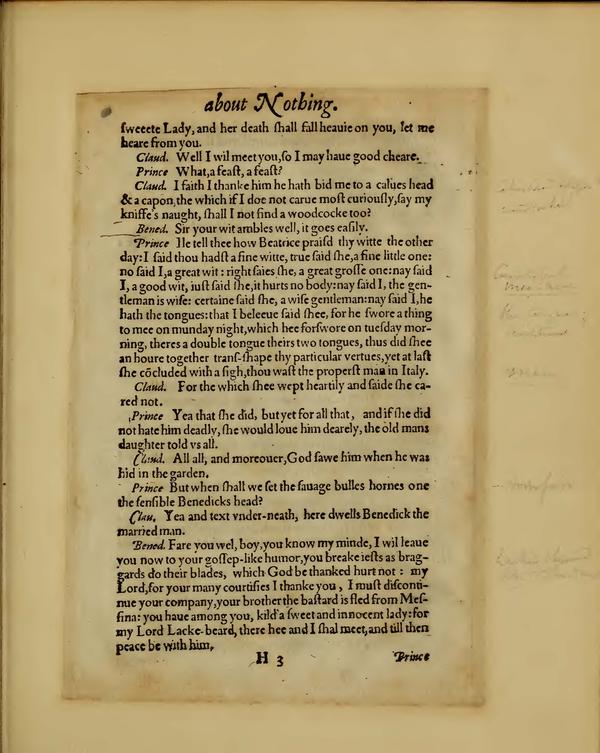 about Nothing.
ſweete Lady, and her death ſhall fall heauie on you, let me
heare from you.
Claud. Well I wil meet you, ſo I may haue good cheare.
Prince What, a feaſt, a feaſt?
Claud. I faith I thanke him he hath bid me to a calues head
& a capon, the which if I doe not carue moſt curiouſly, ſay my
kniffe's naught, ſhall I not find a woodcocke too?
Bened. Sir your wit ambles well, it goes eaſily.
Prince Ile tell thee how Beatrice praiſd thy witte the other
day: I ſaid thou hadſt a fine witte, true ſaid ſhe, a fine little one:
no ſaid I, a great wit: right ſaies ſhe, a great groſſe one: nay ſaid
I, a good wit, iuſt ſaid ſhe, it hurts no body: nay ſaid I, the gen-
tleman is wiſe: certaine ſaid ſhe, a wiſe gentleman: nay ſaid I, he
hath the tongues: that I beleeue ſaid ſhee, for he ſwore a thing
to mee on munday night, which hee forſwore on tueſday mor-
ning, theres a double tongue theirs two tongues, thus did ſhee
an houre together tranſ-ſhape thy particular vertues, yet at laſt
ſhe cõcluded with a ſigh, thou waſt the properſt man in Italy.
Claud. For the which ſhee wept heartily and ſaide ſhe ca-
red not.
Prince Yea that ſhe did, but yet for all that, and if ſhe did
not hate him deadly, ſhe would loue him dearely, the old mans
daughter told vs all.
Claud. All all, and moreouer, God ſawe him when he was
hid in the garden.
Prince But when ſhall we ſet the ſauage bulles hornes one
the ſenſible Benedicks head?
Clau. Yea and text vnder-neath, here dwells Benedick the
married man.
Bened. Fare you wel, boy, you know my minde, I wil leaue
you now to your goſſep-like humor, you breake ieſts as brag-
gards do their blades, which God be thanked hurt not: my
Lord, for your many courtiſies I thanke you, I muſt diſconti-
nue your company, your brother the baſtard is fled from Meſ-
ſina: you haue among you, kild a ſweet and innocent lady: for
my Lord Lacke-beard, there hee and I ſhal meet, and till then
peace be with him,
H 3
Prince